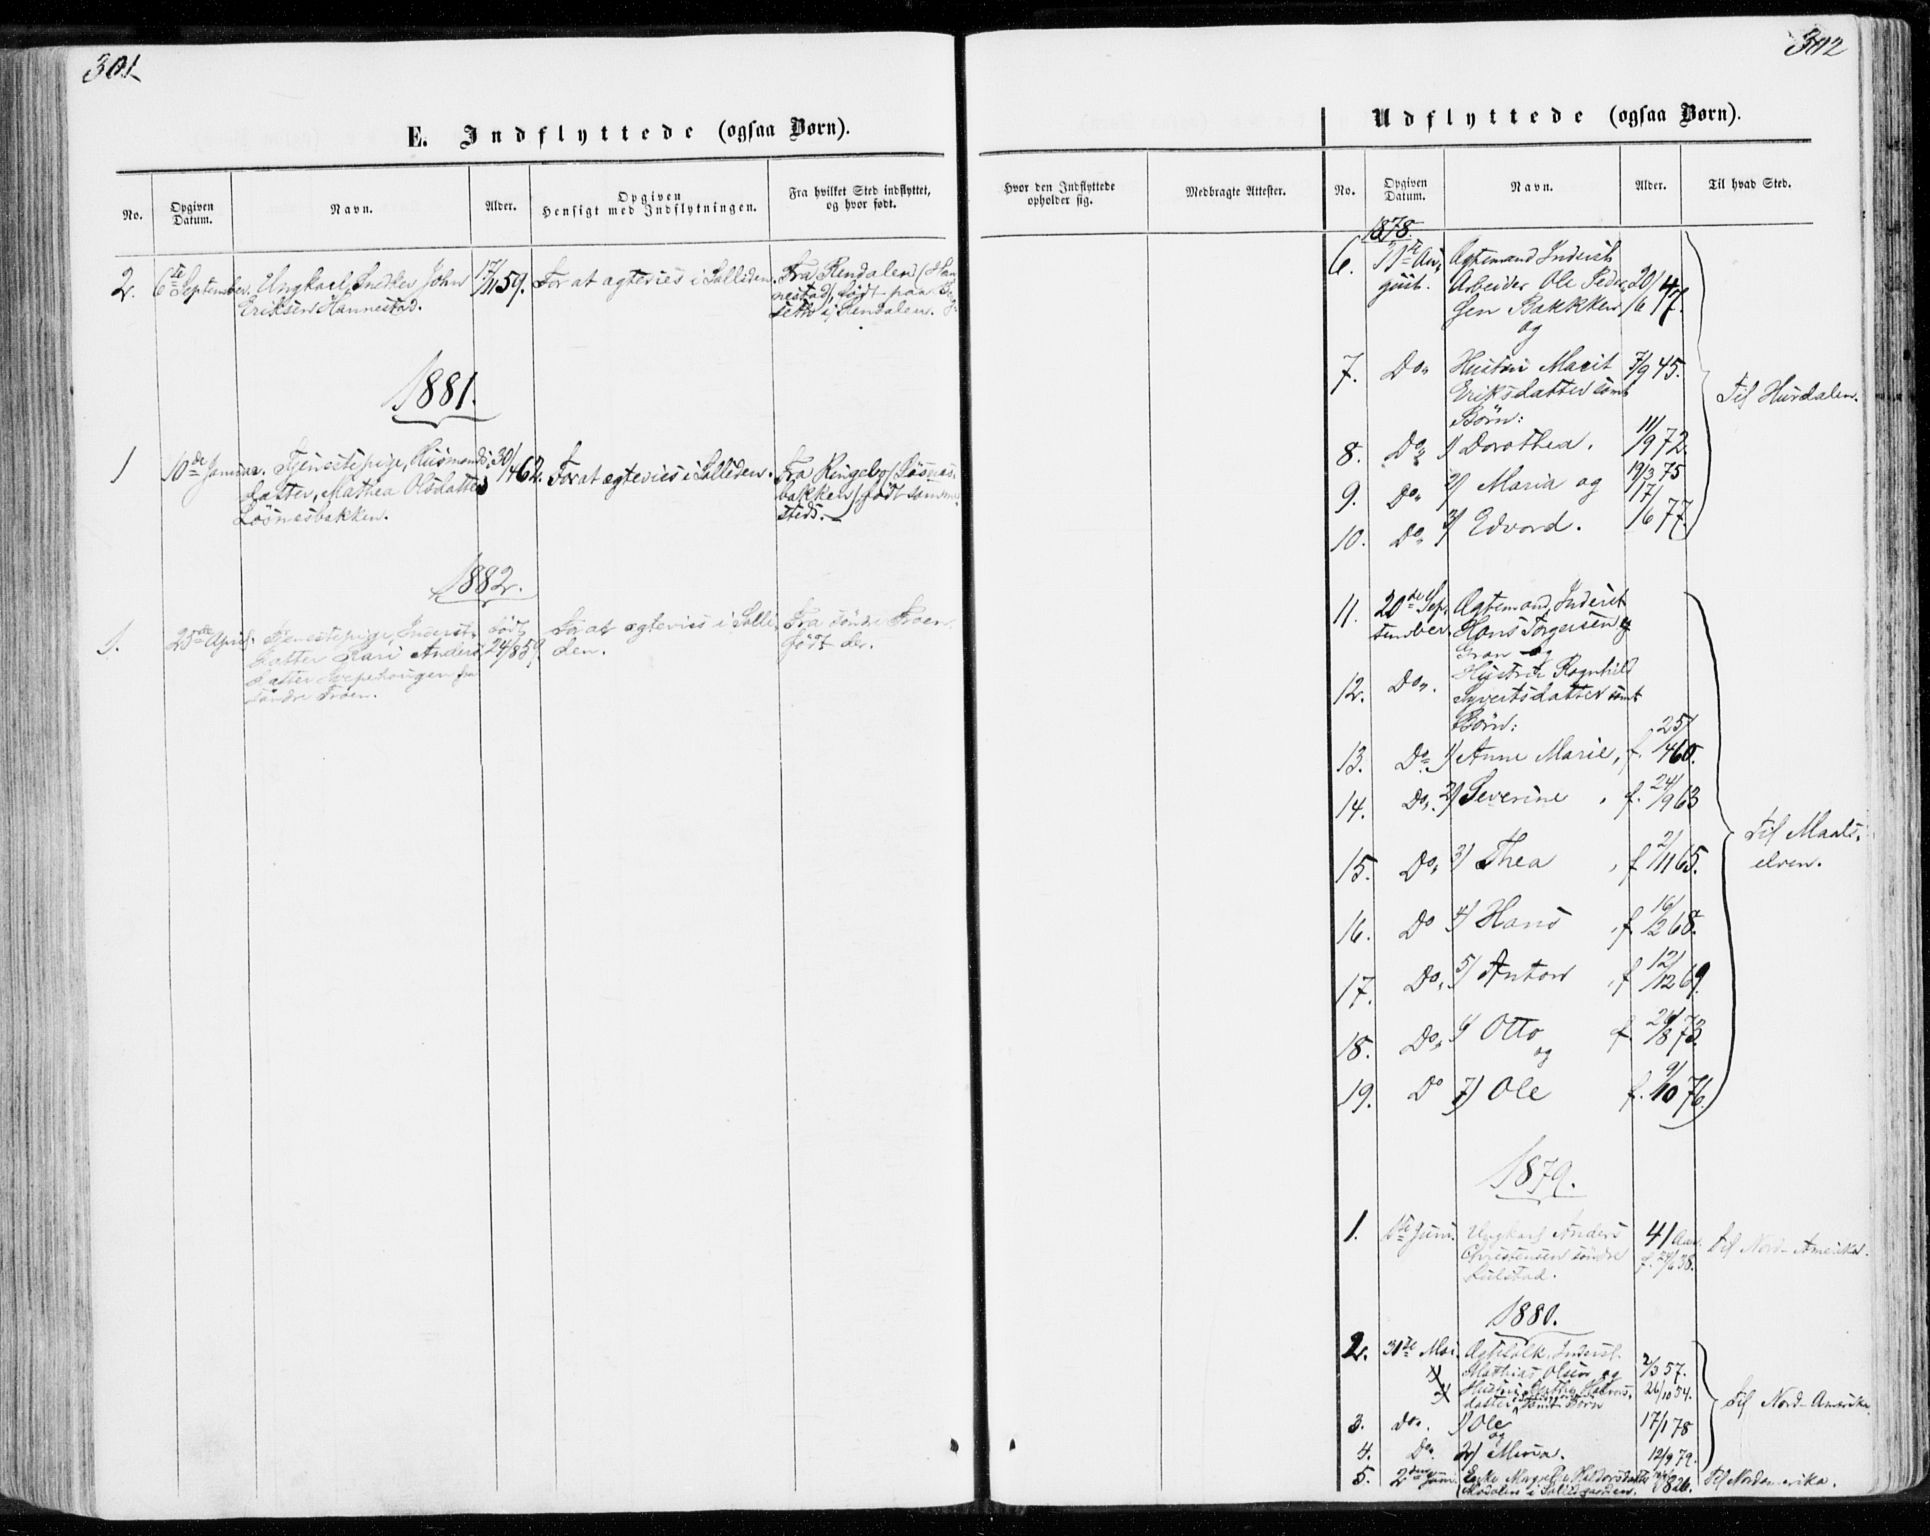 301
E. Indflyttede (ogsaa Børn).
No.
Opgiven
Datum.
Navn.
Alder.
Opgiven
Hensigt med Indflytningen.
Fra hvilket Sted indflyttet,
og hvor født.
2. 6te September. Ungkarl, Snedker John 17/11 59. For at ægtevies i Solliden. Fra Rendalen / Han-
Eriksen Hannestad. nestad /, født paa
i Rendalen.
1881.
1 10de Januar. Tjenestepige, Husmands- 30/4 62. For at ægtevies i Solliden. Fra Ringebo / Løsnæs-
datter, Mathea Olsdatter bakken / født sammes
Løsnesbakken. steds.
1882.
1. 25de April. Tjenestepige, Inderst- født For at ægtevies i Solli- Fra Søndre Froen,
datter Kari Anders- 24/8 59. den. født der.
datter fra
Søndre Froen.
302
Udflyttede (ogsaa Børn).
Hvor den Indflyttede
opholder sig.
Medbragte Attester.
No.
Opgiven
Datum.
Navn.
Alder.
Til hvad Sted.
1878.
6. Au- Ægtemand Inderst
gust. Arbeider Ole Peder- 20/6 47.
sen Bakkken
og
7. Do. Hustru Marit 7/9 45.
Eriksdatter samt Til Hurdalen.
Børn:
8. Do. 1) Dorothea. 11/9 72.
9. Do. 2) Maria og 19/3 75
10. Do. 3) Edvard. 17/6 77.
11. 20de Sep- Ægtemand, Inderst
tember. Hans Torgersen
Gran og
12. Do. Hustru Ragnhild
Syvertsdatter samt
Børn:
13. Do. 1) Anne Marie, f. 25/4 60.
14. Do. 2) Severine, f. 24/9 63
Til Maals-
15. Do. 3) Thea, f. 2/11 65. elven.
16. Do 4) Hans, f. 16/2 68.
17. Do. 5) Anton, f. 12/12 69.
18. Do. 6) Otto f. /8 73.
og
19. Do 7) Ole f. 9/10 76.
1879.
1. Juni. Ungkarl Anders 41 Aar. Til Nord-Amerika.
Christensen søndre f. /6 38.
1880.
2. 31te Mai. Ægtefolk, Inderst
Mathias Olsen og 2/3 57.
Hustru 26/10 54. Til Nord-Amerika.
datter samt Børn
3. do. 1) Ole 17/1 78
og
4. Do. 2) Mina. 12/9 79.
5. 2den Juni. Enke Margrethe Haldorsdatter 826. Til Nordamerika.
i